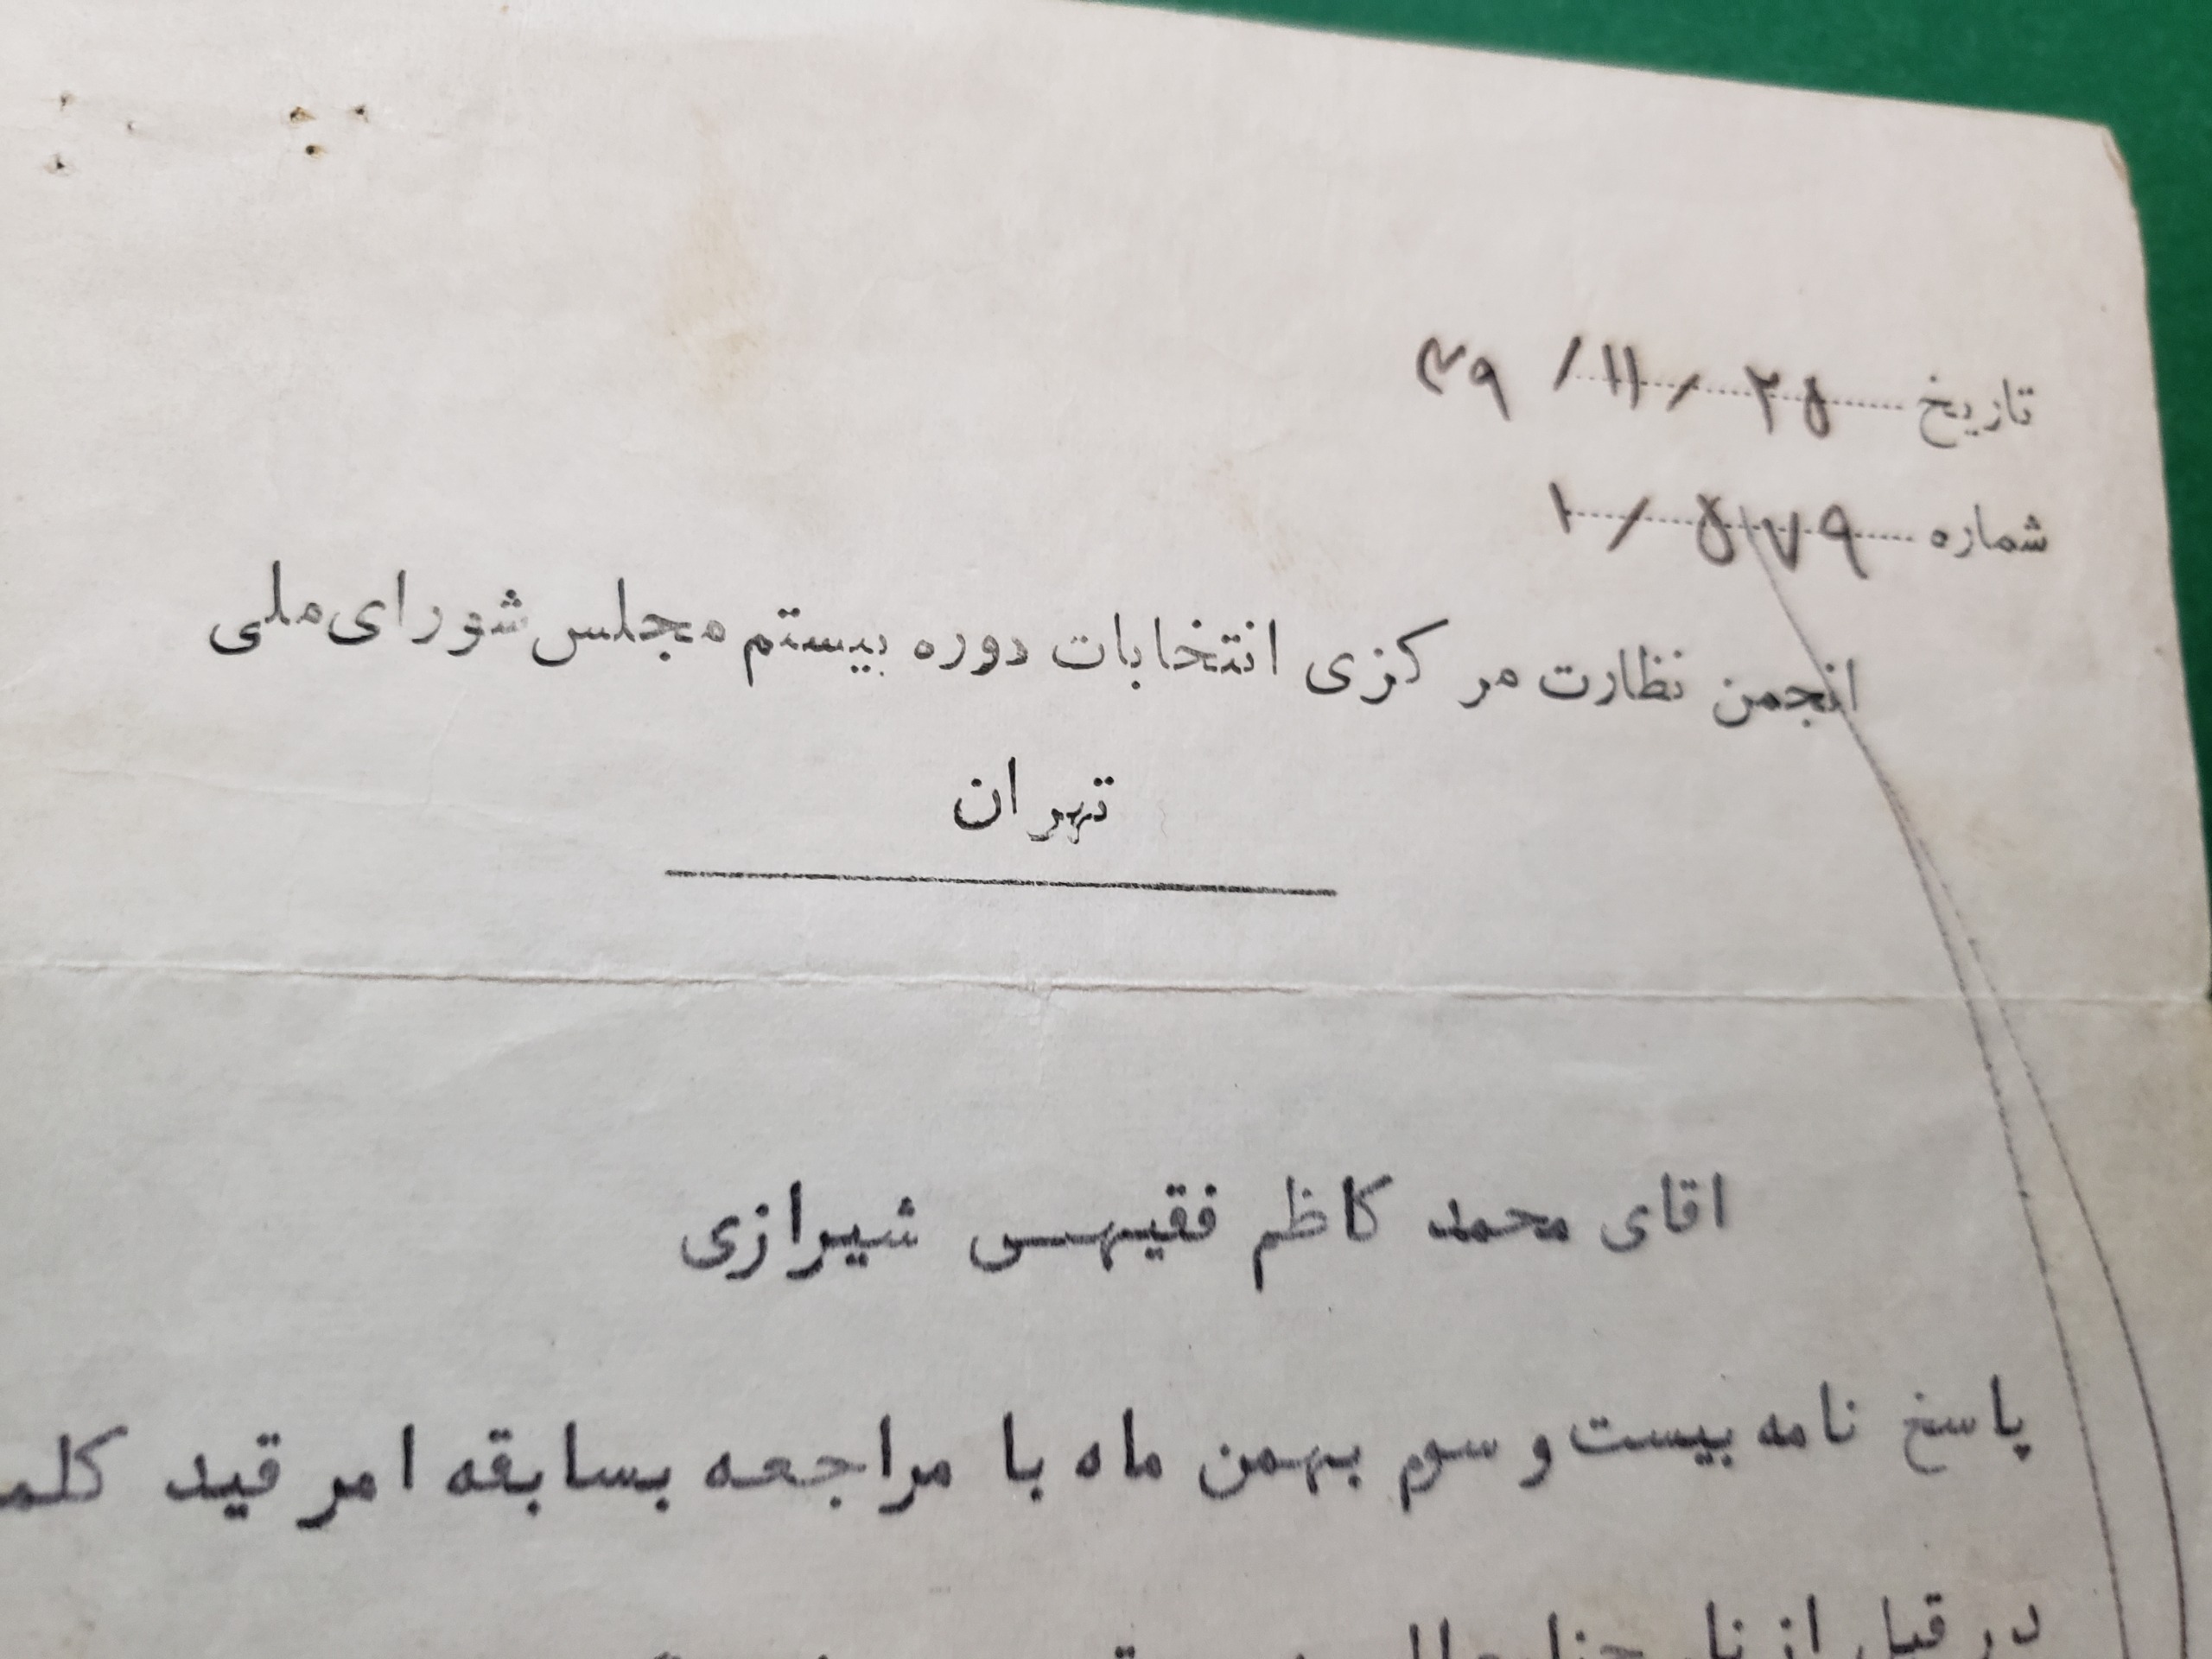 تاریخ ۲۵ / ۱۱ / ۳۹
شماره ۵۷۹ / ۱
انجمن نظارت مرکزی انتخابات دوره بیستم مجلس شورای ملی
تهران
اقای محمد کاظم فقیهی شیرازی
پاسخ نامه بیست و سوم بهمن ماه با مراجعه بسابقه امر قید
در قبل از